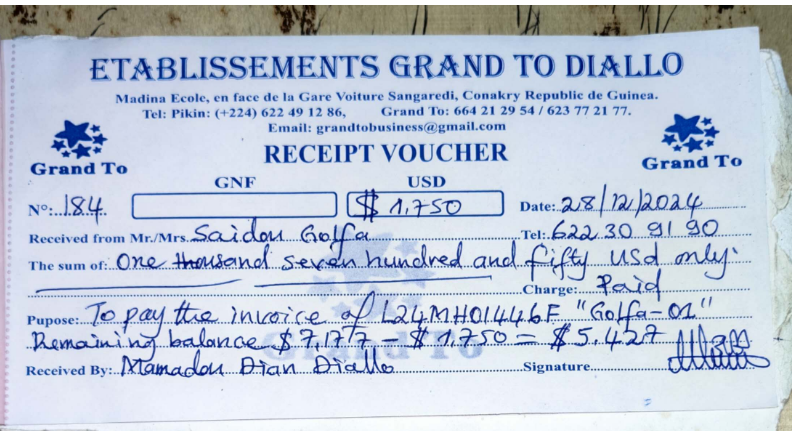 ETABLISSEMENTS GRAND TO DIALLO
Madina Ecole, en face de la Gare Voiture Sangaredi, Conakry Republic de Guinea.
Tel: Pikin: (+224) 622 49 12 86, Grand To: 664 21 29 54 / 623 77 21 77.
Email: grandtobusiness@gmail.com
Grand To RECEIPT VOUCHER Grand To
GNF USD
N°: 184 $ 1,750 Date: 28/12/2024
Received from Mr./Mrs. Saidou Golfa Tel: 622 30 91 90
The sum of: One thousand seven hundred and fifty USD only.
Charge: Paid
Pupose: To pay the invoice of L24MH01446F "Golfa-01"
Remaining balance $ 7,177 - $ 1,750 = $ 5,427
Grand To
Received By: Mamadou Dian Diallo Signature